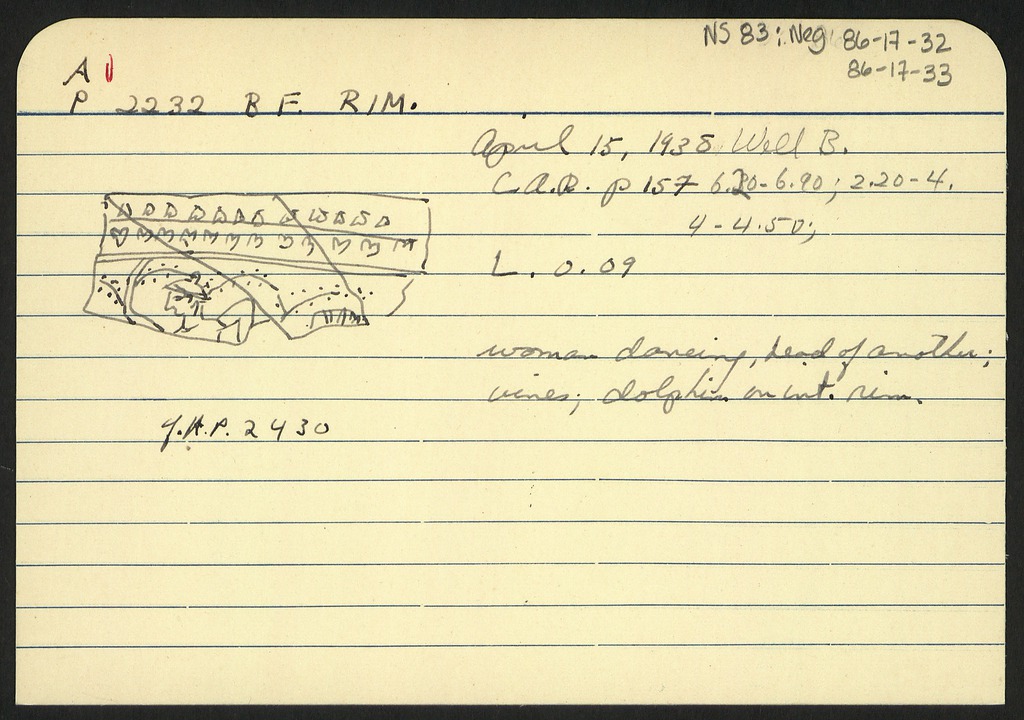 NS 83; Neg: 86-17-32
86-17-33
A
P 2232 B F. RIM.
April 15, 1938 Well B.
C.A.R. p 157 6.20-6.90; 2.20-4.
4-4.50;
L. 0.09
woman dancing, head of another;
vines; dolphin on int. rim.
f.A.P. 2430